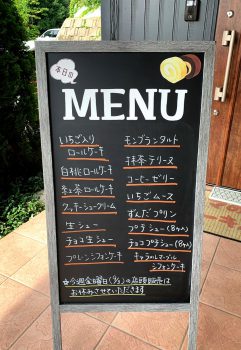 本日の
MENU
いちご入り
ロールケーキ
白桃ロールケーキ
紅茶ロールケーキ
クッキーシュークリーム
生シュー
チョコ生シュー
プレーンシフォンケーキ
モンブランタルト
抹茶テリーヌ
コーヒーゼリー
いちごムース
ずんだプリン
プチシュー(8ヶ入)
チョコプチシュー(8ヶ入)
キャラメルマーブル
シフォンケーキ
☆今週金曜日(9/5)の店頭販売は
お休みさせていただきます